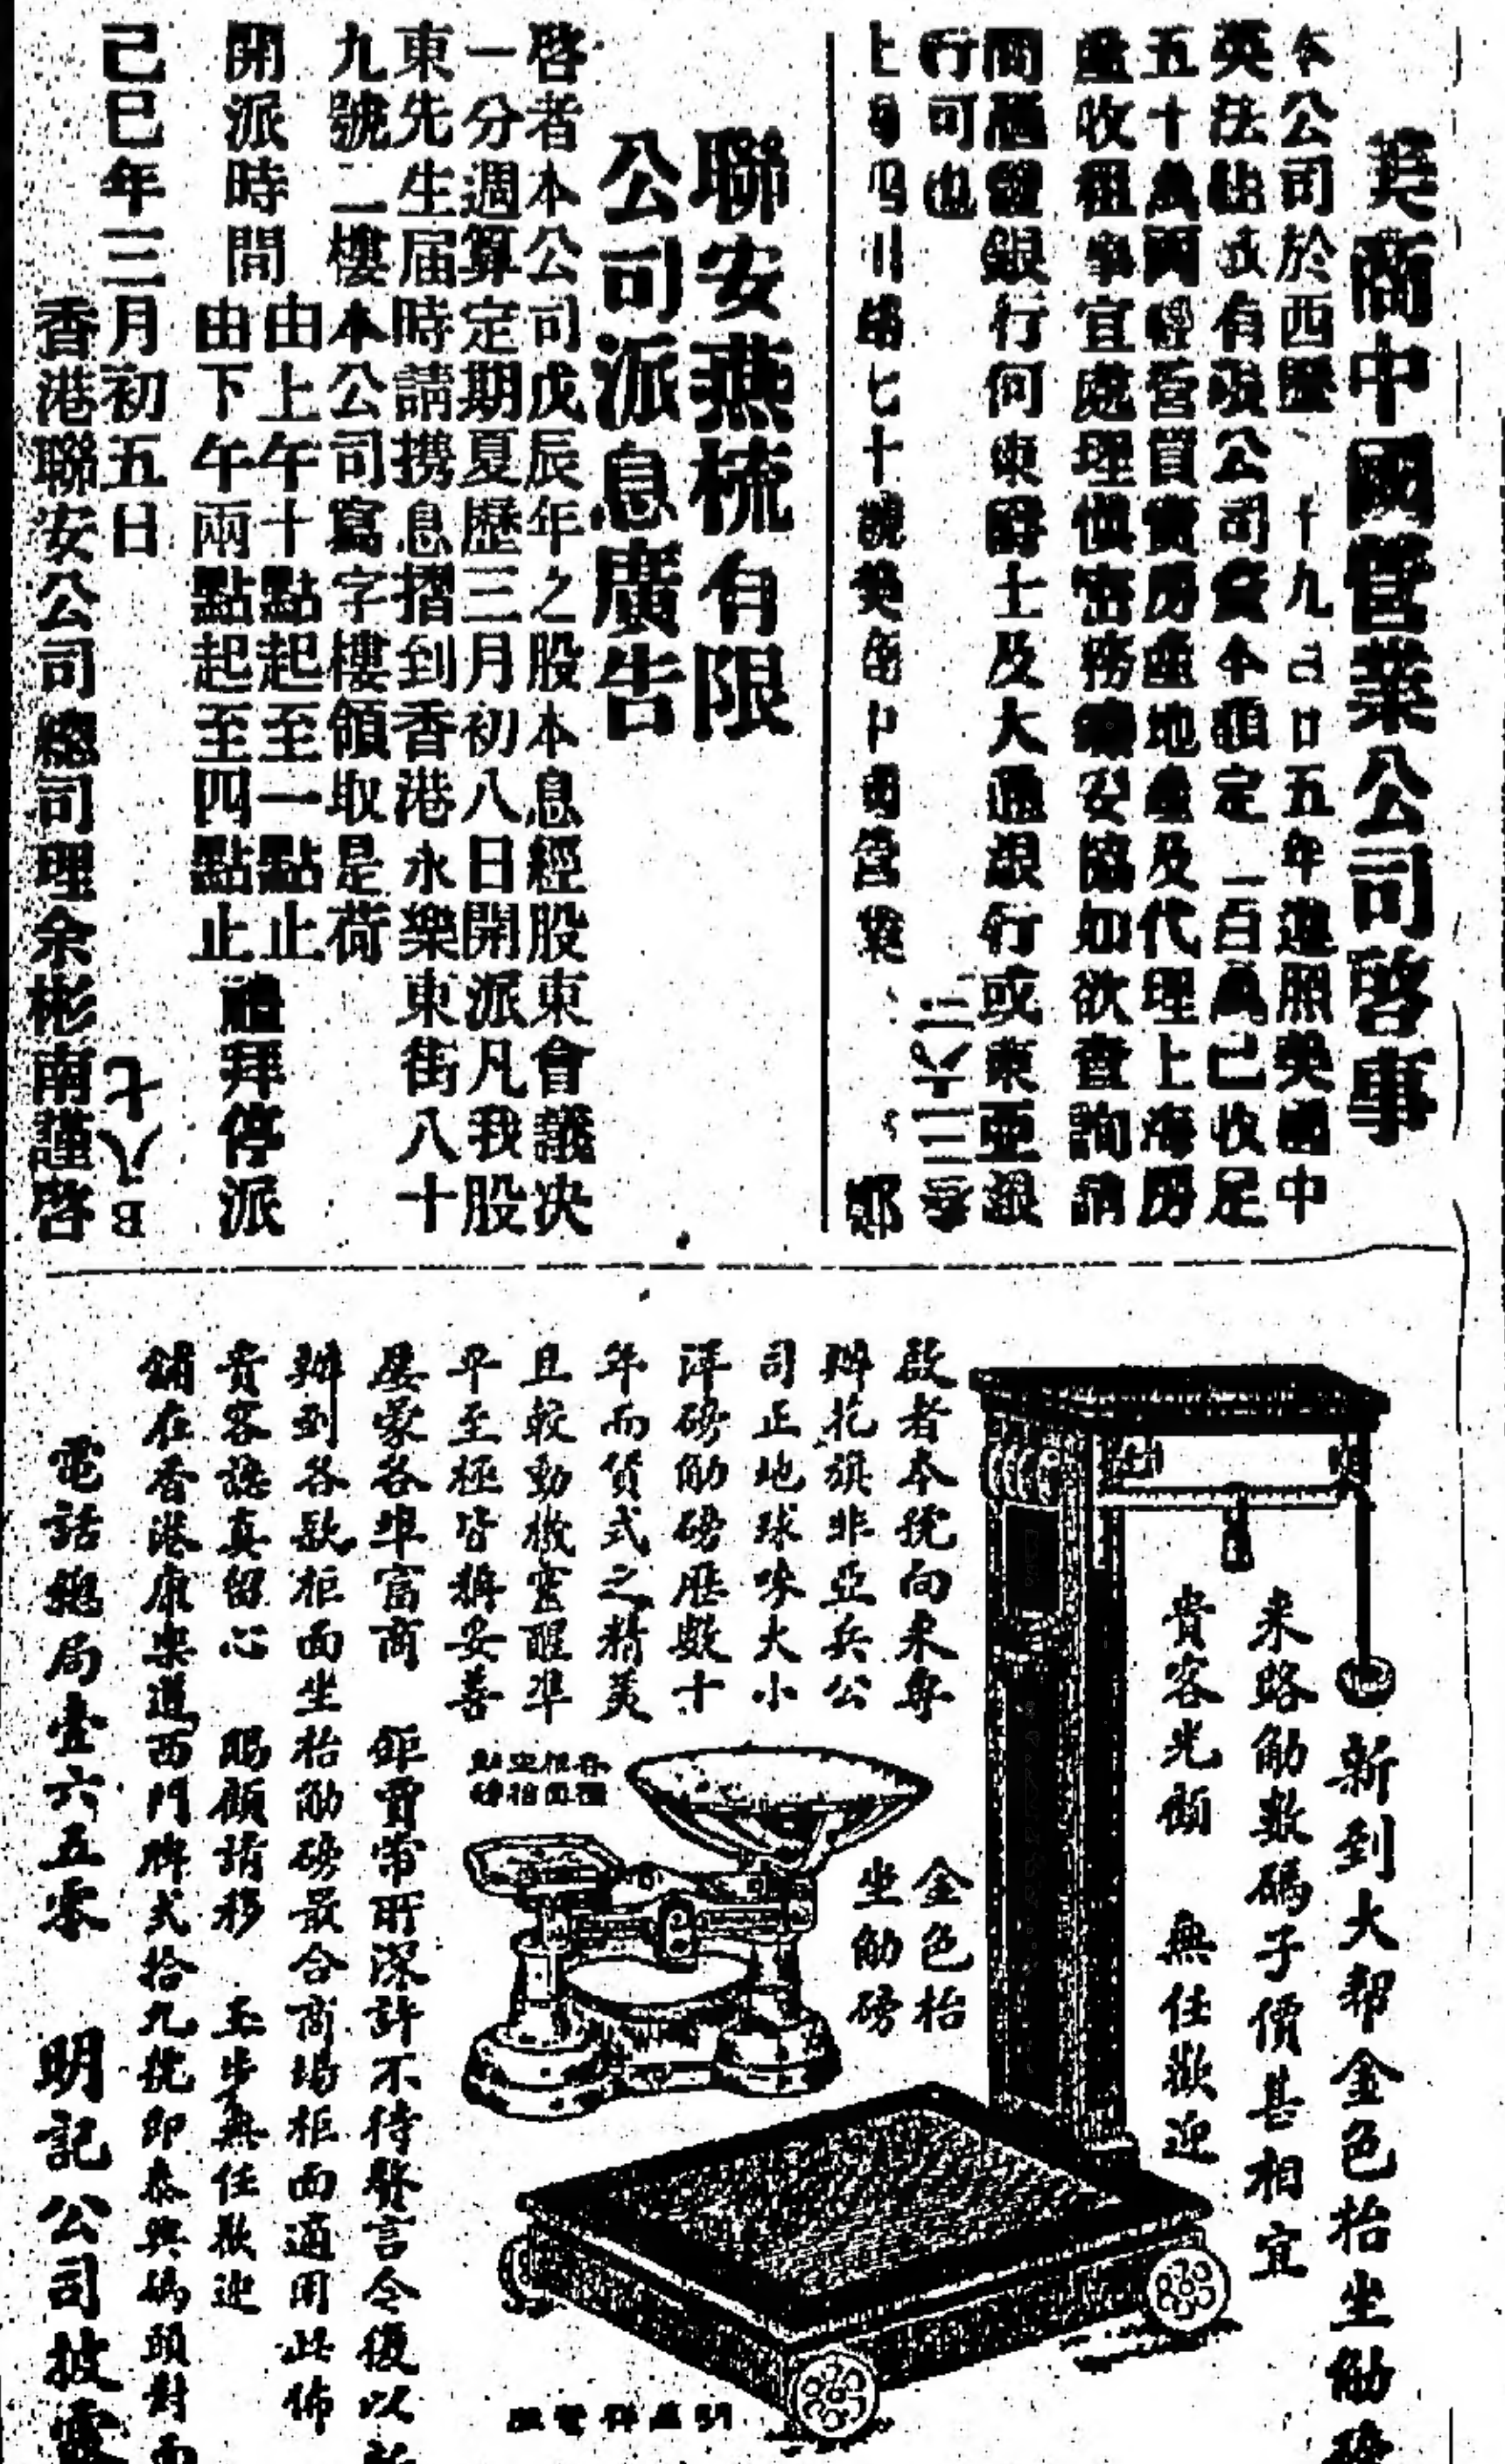 英商中國營業公司啓事
本公司於西歷一千九百廿五年遵照英國中
英法出
有限公司資本額定一百萬已收足
五十萬兩經營買賣房產地產及代理上海房
產收租事宜處理慎密務
安協如欲查詢請
問
銀行何東爵士及大通銀行或東亞銀
行可也
上海四川路七十號英商中國營業
聯安燕梳有限
公司派息廣告
啓者本公司戊辰年之股本息經股東會議决
一分週算定期夏歷三月初八日開派凡我股
東先生届時請携息摺到香港永樂東街八十
九號二樓本公司寫字樓領取是荷
開派時間
由上午十點起至一點止
由下午兩點起至四點止
禮拜停派
己巳年三月初五日
七八B
香港聯安公司總司理余彬南謹啓
新到大帮金色抬坐觔磅
來路觔數碼子價甚相宜
貴客光顧 無任歡迎
啟者本號向來專
辦花旗非亞兵公
司正地球嘜大小
洋磅觔磅歷數十
年而貨式之精美
且較動機靈醒準
平至極皆稱妥善
屢蒙各埠富商 鉅賈常所深許不待贅言今復以新
辦到各款柜面坐枱觔磅最合商塲柜面適用此佈
貴客認真留心 賜顧請移 玉步無任歡迎
鋪在香港康樂道西門牌弍拾九號即泰興碼頭對面
電話總局壹六五零 明記公司披露
金色枱
坐觔磅